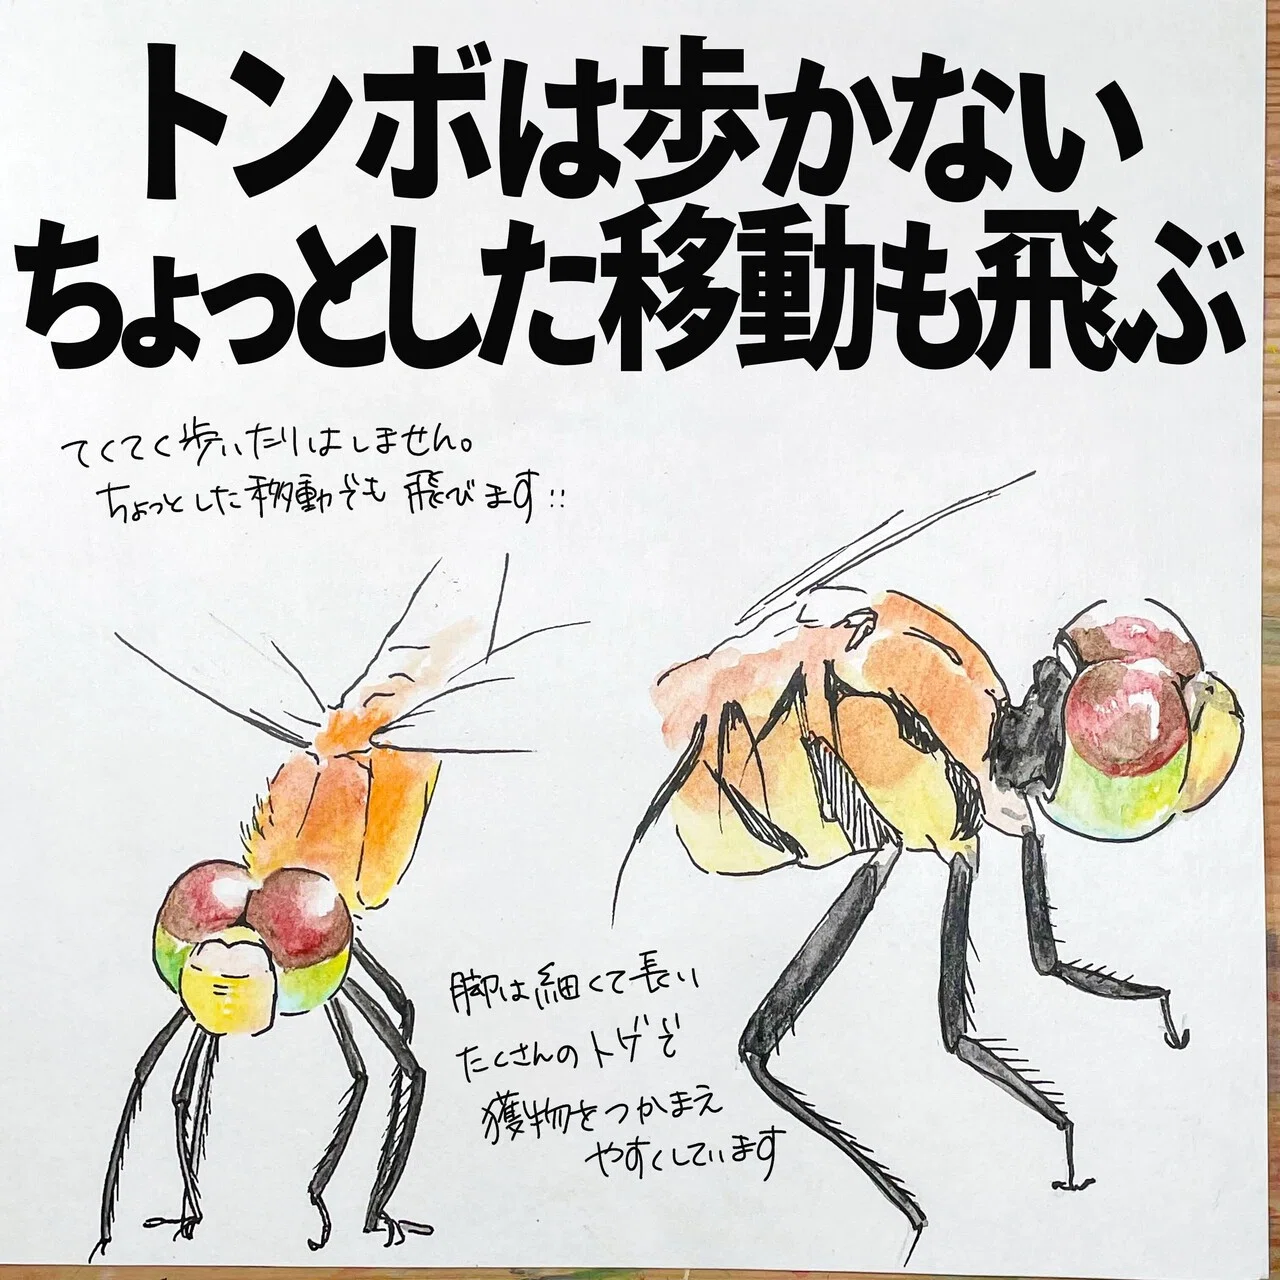 トンボは歩かない
ちょっとした移動も飛ぶ
てくてく歩いたりはしません。
ちょっとした移動でも飛びます!!
脚は細くて長い
たくさんのトゲで
獲物をつかまえ
やすくしています